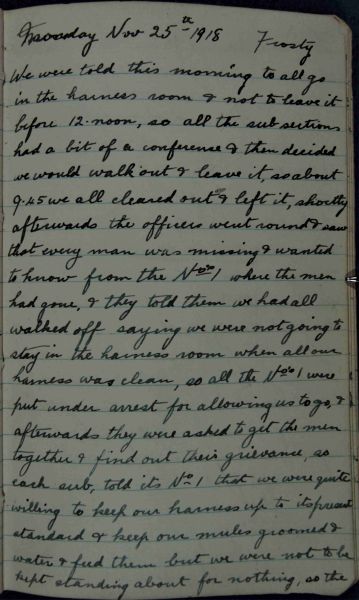 Monday Nov 25th 1918 Frosty
We were told this morning to all go
in the harness room & not to leave it
before 12 noon, so all the sub sections
had a bit of a conference & then decided
we would walk out & leave it, so about
9.45 we all cleared out & left it, shortly
afterwards the officers went round & saw
that every man was missing & wanted
to know from the Nos 1 where the men
had gone, & they told them we had all
walked off saying we were not going to
stay in the harness room when all our
harness was clean, so all the Nos 1 were
put under arrest for allowing us to go, &
afterwards they were asked to get the men
together & find out their grievance, so
each sub, told its No 1 that we were quite
willing to keep our harness up to its present
standard & keep our mules groomed &
water & feed them but we were not to be
kept standing about for nothing, so the